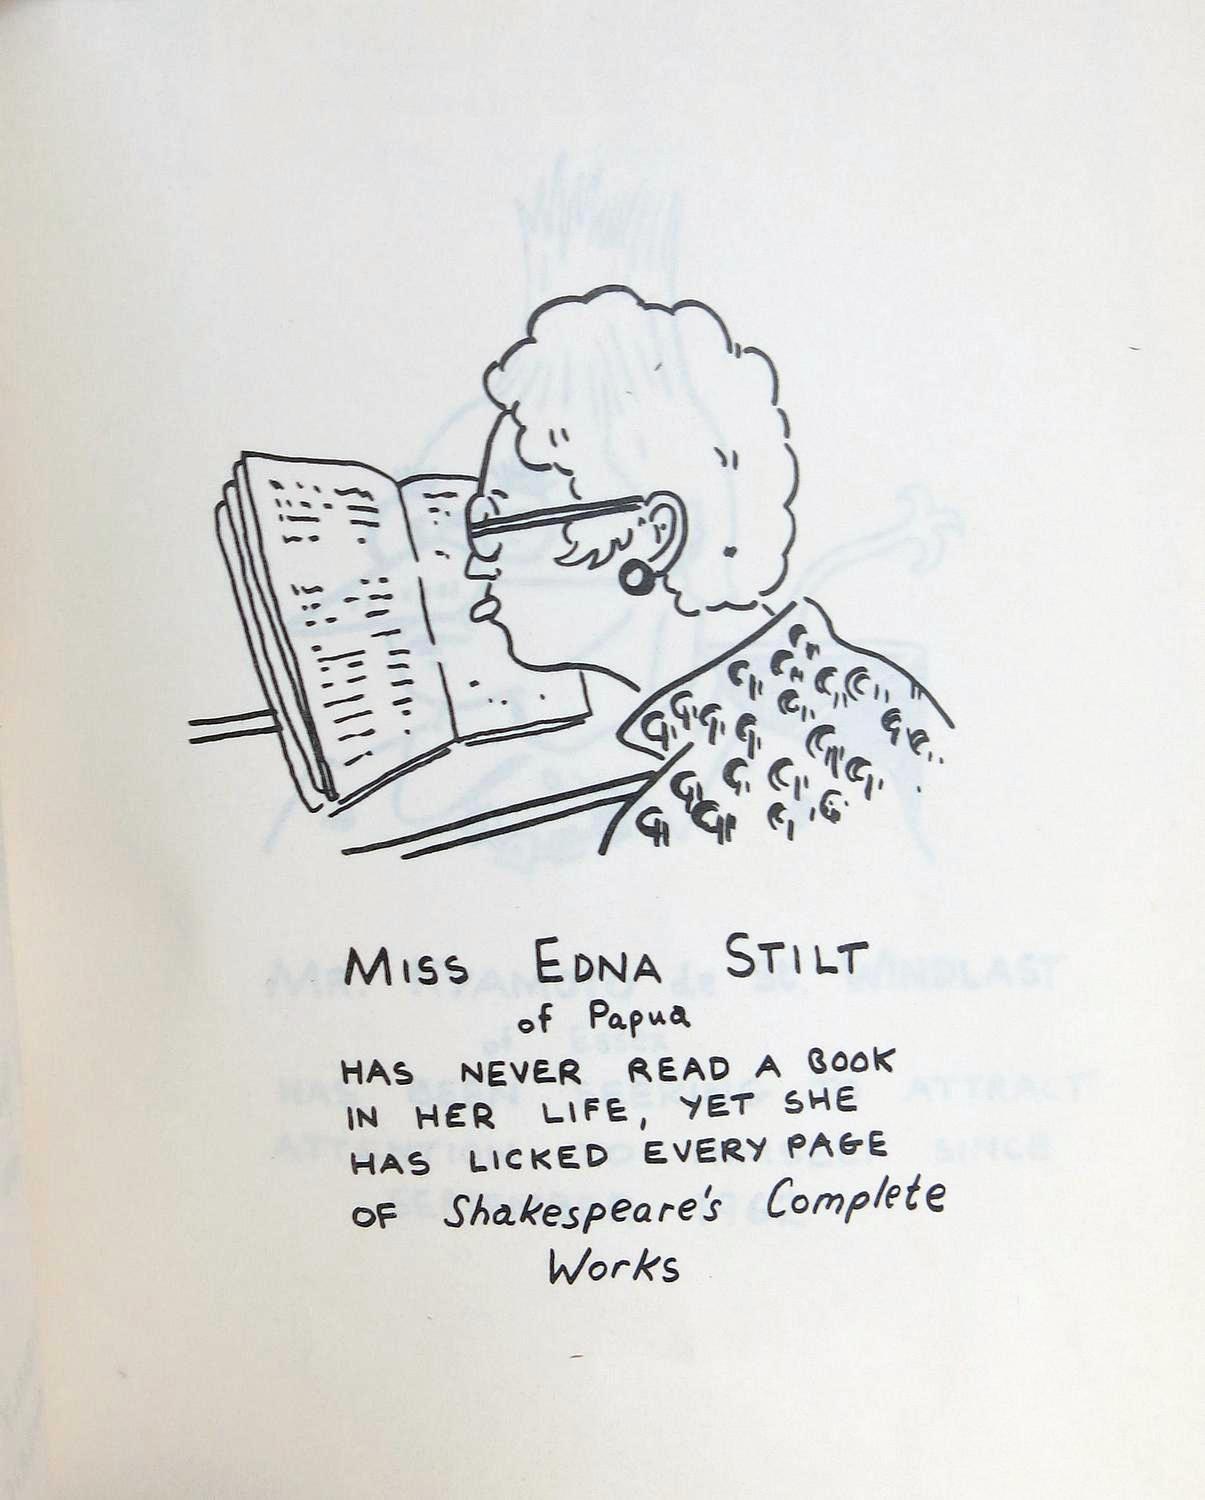 MISS EDNA STILT
of Papua
HAS NEVER READ A BOOK
IN HER LIFE, YET SHE
HAS LICKED EVERY PAGE
OF Shakespeare's Complete
Works